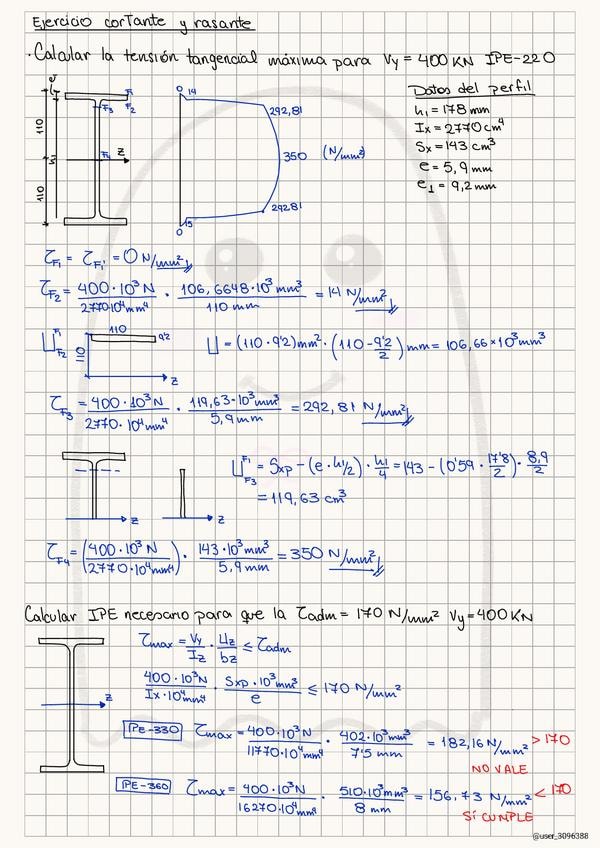 Ejercicio corTante y rasante
· Calcular la tensión tangencial máxima para Vy = 400 KN IPE-220
Datos del perfil
h₁ = 178 mm
Ix = 2770 cm⁴
Sx = 143 cm³
e = 5,9 mm
e₁ = 9,2 mm
110
110
h₁
F₁
F₃ F₂
F₄ Z
0 14
292,81
350 (N/mm²)
29281
0 15
τF₁ = τF₁' = 0 N/mm²
τF₂ = 400·10³ N / 2770·10⁴ mm⁴ · 106,6648·10³ mm³ / 110 mm = 14 N/mm²
⊔ F₁ F₂
110
9'2
110
Z
⊔ = (110·9'2) mm² · (110 - 9'2/2) mm = 106,66×10³ mm³
τF₃ = 400·10³ N / 2770·10⁴ mm⁴ · 119,63·10³ mm³ / 5,9 mm = 292,81 N/mm²
Z
Z
⊔ F₁ F₃ = Sxp - (e·h₁/2) · h₁/4 = 143 - (0'59 · 17'8/2) · 8,9/2
= 119,63 cm³
τF₄ = (400·10³ N / 2770·10⁴ mm⁴) · 143·10³ mm³ / 5,9 mm = 350 N/mm²
Calcular IPE necesario para que la τadm = 170 N/mm² Vy = 400 KN
Z
τmax = Vy/Iz · ⊔z/bz ≤ τadm
400·10³ N / Ix·10⁴ mm⁴ · Sxp·10³ mm³ / e ≤ 170 N/mm²
IPE-330 τmax = 400·10³ N / 11770·10⁴ mm⁴ · 402·10³ mm³ / 7'5 mm = 182,16 N/mm² > 170
NO VALE
IPE-360 τmax = 400·10³ N / 16270·10⁴ mm⁴ · 510·10³ mm³ / 8 mm = 156,73 N/mm² < 170
SÍ CUMPLE
@user_3096388